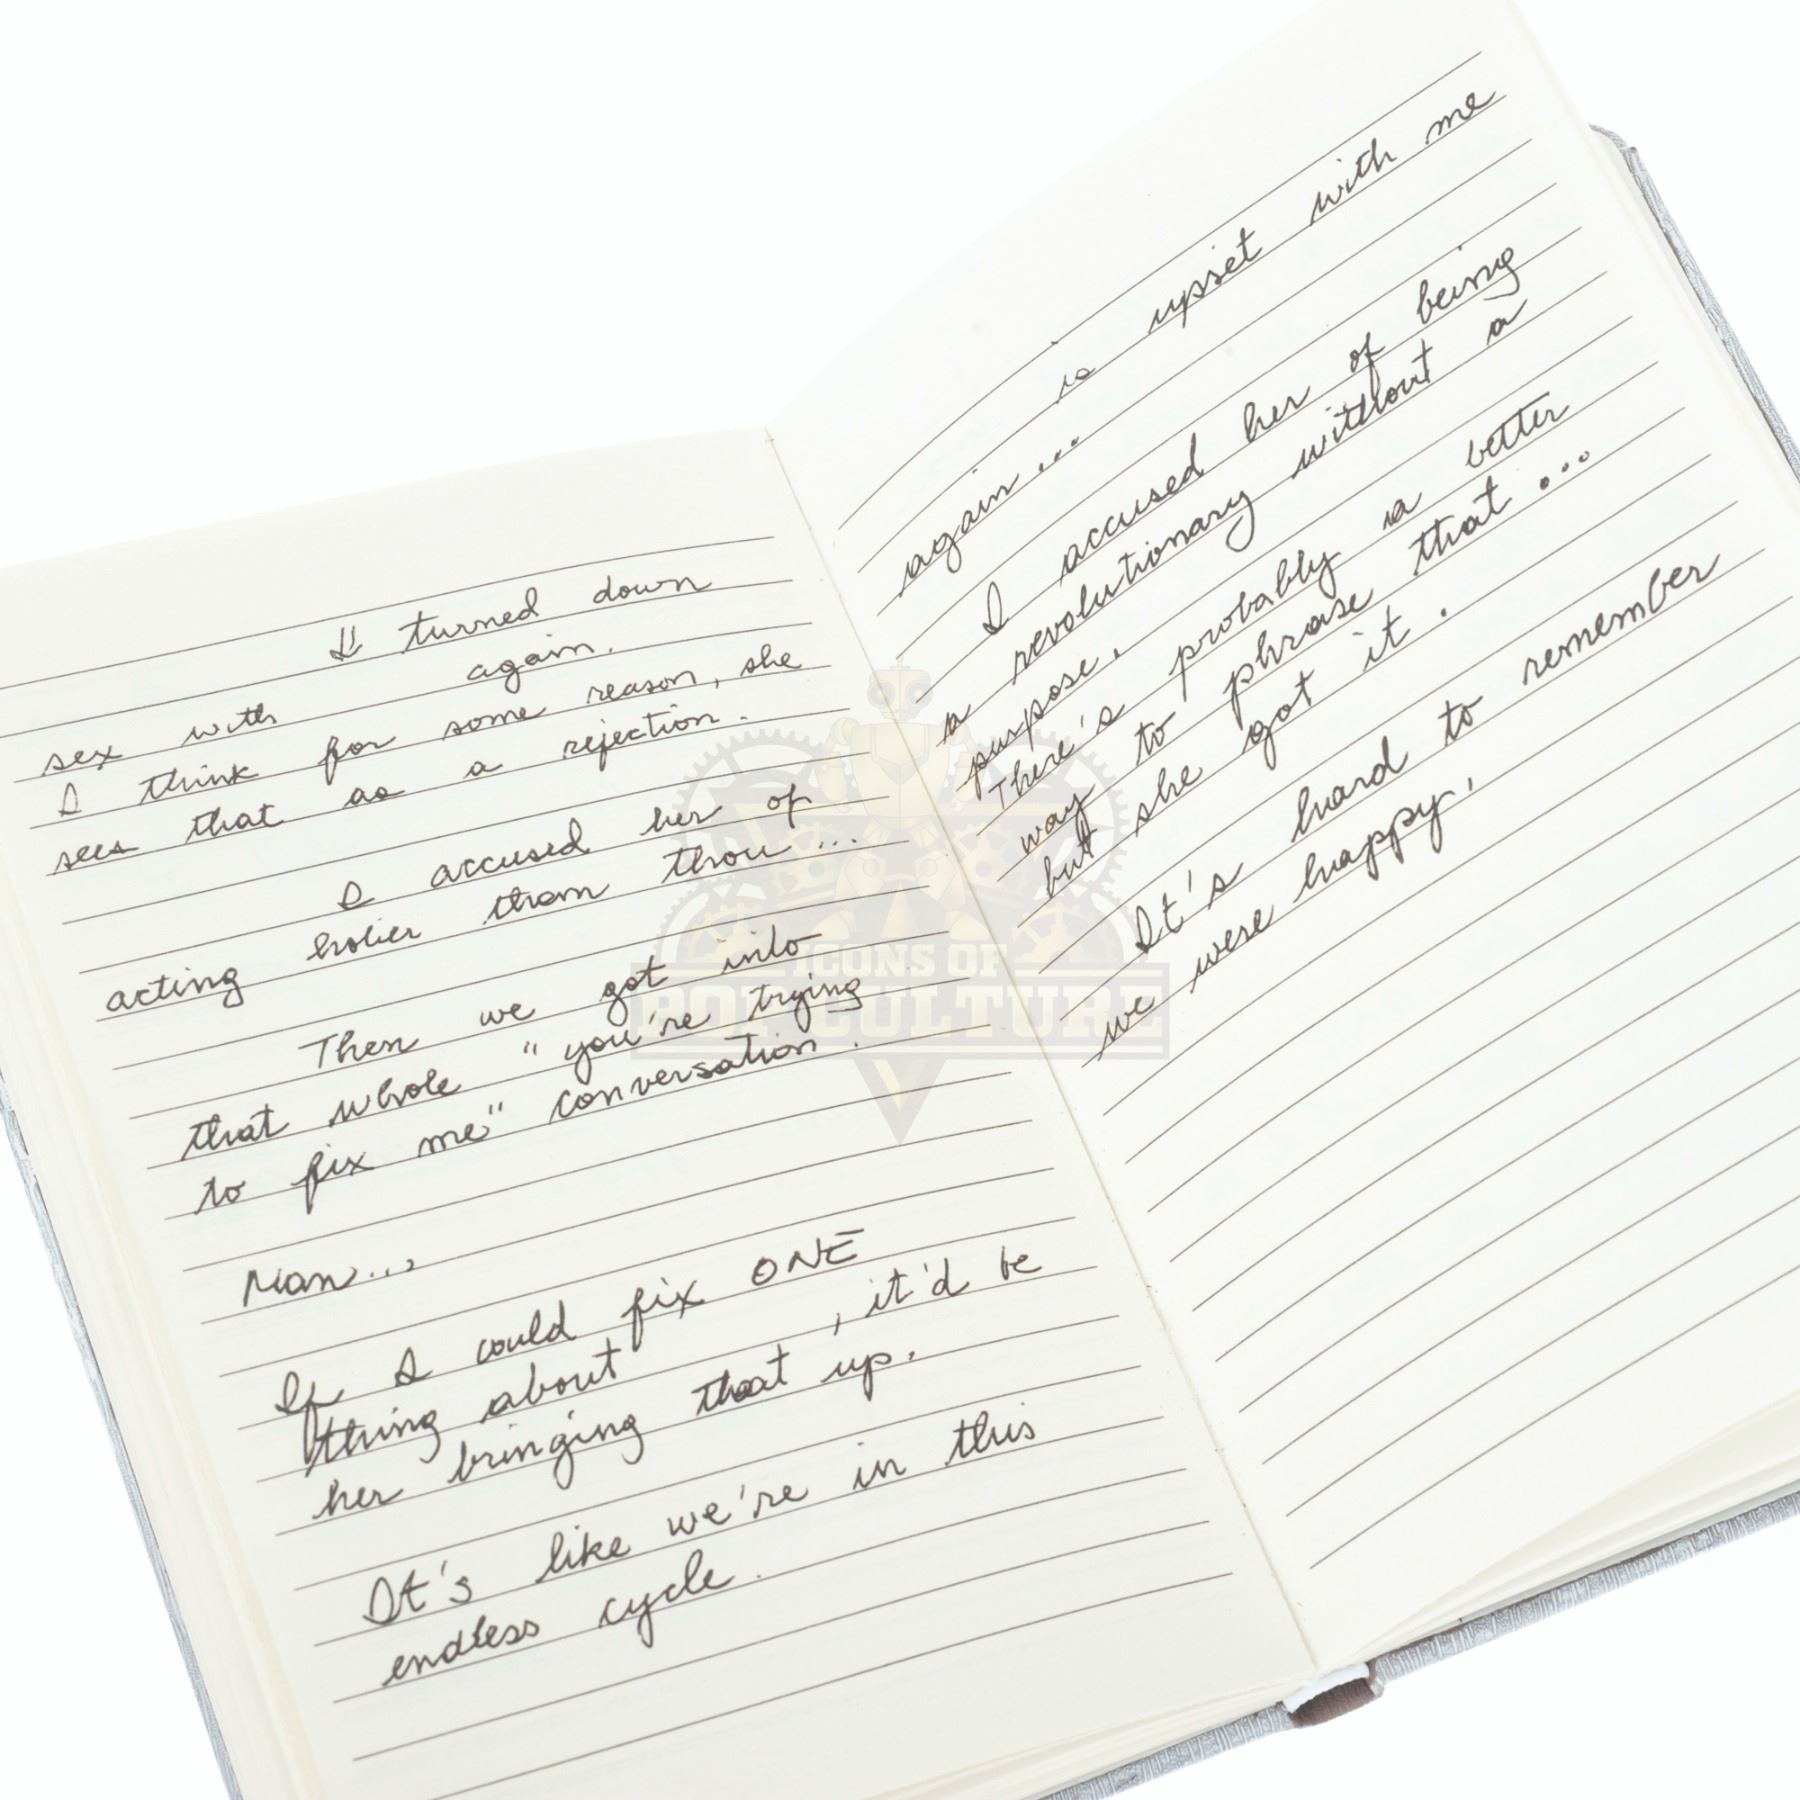 I turned down
sex with again.
I think for some reason, she
sees that as a rejection.
I accused her of
acting holier than thou...
Then we got into
that whole "you're trying
to fix me" conversation.
Man...
If I could fix ONE
thing about , it'd be
her bringing that up.
It's like we're in this
endless cycle.
is upset with me
again...
I accused her of being
a revolutionary without a
purpose.
There's probably a better
way to phrase that...
but she got it.
It's hard to remember
we were happy.
ICONS OF
POP CULTURE